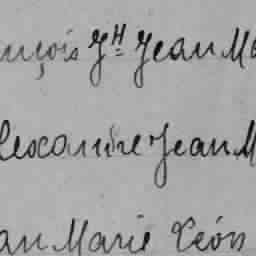 nçois Jh Jean Ma
lexandre Jean M
an Marie Léon